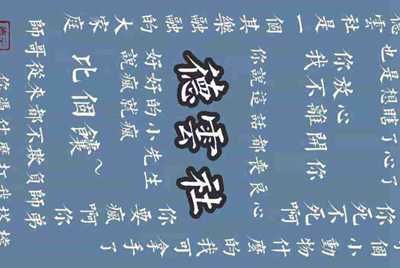 德雲社是一
其樂融融的大家庭
也是想瞎了心了
你放心
我不離開你
你說這話都喪良心
德雲社
好好的小先生
說瘋就瘋
比個饢～
師哥從來都不欺負師弟
你要瘋啊你
死不死啊
個小動物什麼的我可拿手了
你憑什麼打我